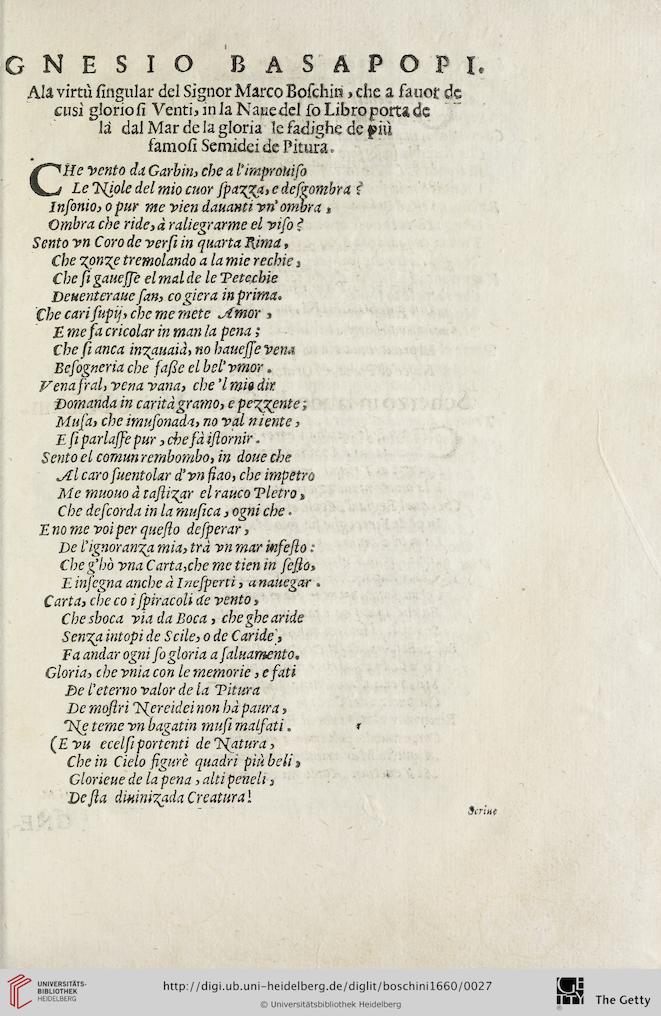 GNESIO BASAPOPI.
Ala virtù ſingular del Signor Marco Boſchin, che a fauor de
cusì glorioſi Venti, in la Naue del ſo Libro porta de
là dal Mar de la gloria le fadighe de più
famoſi Semidei de Pitura.
CHe vento da Garbin, che a l'improuiſo
Le Niole del mio cuor ſpazza, e deſgombra?
Inſonio, o pur me vien dauanti vn' ombra,
Ombra che ride, à raliegrarme el viſo?
Sento vn Coro de verſi in quarta Rima,
Che zonze tremolando a la mie rechie,
Che ſi gaueſſe el mal de le Petecchie
Deuenteraue ſan, co giera in prima.
Che cari ſupij, che me mete Amor,
E me fa cricolar in man la pena;
Che ſi anca inzauaià, no haueſſe vena
Beſogneria che faße el bel' vmor.
Vena fral, vena vana, che 'l mio dir
Domanda in carità gramo, e pezzente;
Muſa, che imuſonada, no val niente,
E ſi parlaſſe pur, che fà iſtornir.
Sento el comun rembombo, in doue che
Al caro ſuentolar d' vn fiao, che impetro
Me muouo à taſtizar el rauco Pletro,
Che deſcorda in la muſica, ogni che.
E no me voi per queſto deſperar,
De l'ignoranza mia, trà vn mar infeſto:
Che g'hò vna Carta, che me tien in ſeſto,
E inſegna anche à Ineſperti, a nauegar.
Carta, che co i ſpiracoli de vento,
Che sboca via da Boca, che ghe aride
Senza intopi de Scile, o de Caride,
Fa andar ogni ſo gloria a ſaluamento.
Gloria, che vnia con le memorie, e fati
De l'eterno valor de la Pitura
De moſtri Nereidei non hà paura,
Ne teme vn bagatin muſi malfati.
(E vu ecelſi portenti de Natura,
Che in Cielo figurè quadri più beli,
Glorieue de la pena, alti peneli,
De ſta diuinizada Creatura!
Scriue
UNIVERSITÄTS-
BIBLIOTHEK
HEIDELBERG
http://digi.ub.uni-heidelberg.de/diglit/boschini1660/0027
© Universitätsbibliothek Heidelberg
The Getty